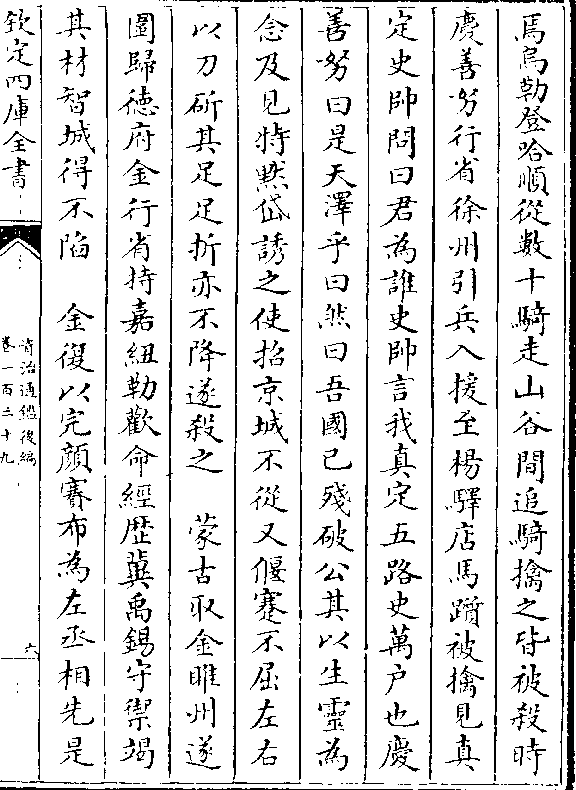 焉烏勒登哈順從數十騎走山谷間追騎擒之皆被殺時
慶善努行省徐州引兵入援至楊驛店馬躓被擒見真
定史帥問曰君為誰史帥言我真定五路史萬户也慶
善努曰是天澤乎曰然曰吾國已殘破公其以生靈為
念及見特黙岱誘之使招京城不從又偃蹇不屈左右
以刀斫其足足折亦不降遂殺之　蒙古取金睢州遂
圍歸徳府金行省持嘉紐勒歡命經歴冀禹錫守禦竭
其材智城得不陷　金復以完顔賽布為左丞相先是
欽定四庫全書
資治通鑑後編
卷一百三十九
六